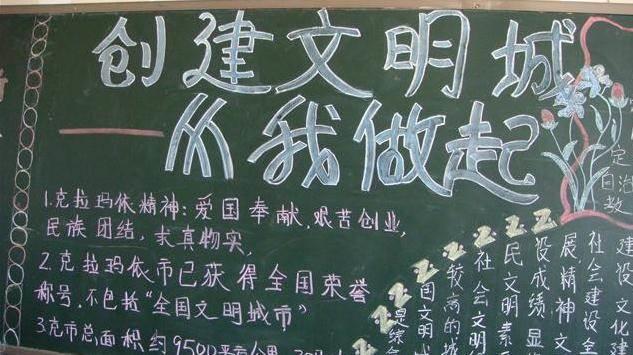 创建文明城
——从我做起
1.克拉玛依精神:爱国奉献.艰苦创业,
民族团结,求真物实,
2.克拉玛依市已获得全国荣誉
称号,不包括“全国文明城市”
3.克市总面积约9500平方公里
定
自治
教
建设文化建
社会建设全
展,精神文
设成绩显
民文明素
社会文明
较高的城
国文明城
是综合